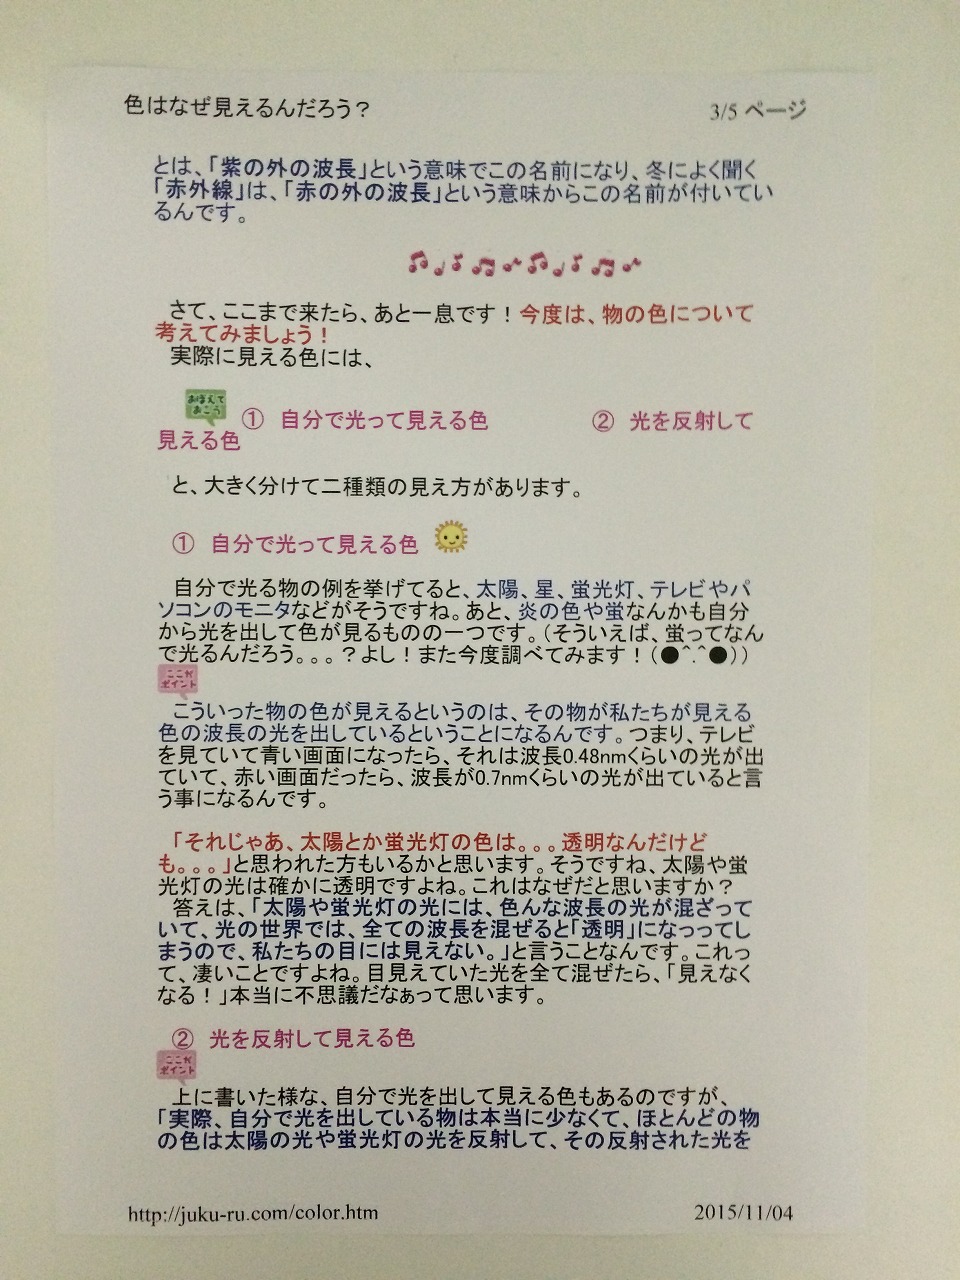 色はなぜ見えるんだろう？
3/5 ページ
とは、「紫の外の波長」という意味でこの名前になり、冬によく聞く
「赤外線」は、「赤の外の波長」という意味からこの名前が付いてい
るんです。
さて、ここまで来たら、あと一息です！今度は、物の色について
考えてみましょう！
実際に見える色には、
おぼえて
おこう
① 自分で光って見える色 ② 光を反射して
見える色
と、大きく分けて二種類の見え方があります。
① 自分で光って見える色
自分で光る物の例を挙げてると、太陽、星、蛍光灯、テレビやパ
ソコンのモニタなどがそうですね。あと、炎の色や蛍なんかも自分
から光を出して色が見るものの一つです。（そういえば、蛍ってなん
で光るんだろう。。。？よし！また今度調べてみます！（●^.^●））
ここが
ポイント
こういった物の色が見えるというのは、その物が私たちが見える
色の波長の光を出しているということになるんです。つまり、テレビ
を見ていて青い画面になったら、それは波長0.48nmくらいの光が出
ていて、赤い画面だったら、波長が0.7nmくらいの光が出ていると言
う事になるんです。
「それじゃあ、太陽とか蛍光灯の色は。。。透明なんだけど
も。。。」と思われた方もいるかと思います。そうですね、太陽や蛍
光灯の光は確かに透明ですよね。これはなぜだと思いますか？
答えは、「太陽や蛍光灯の光には、色んな波長の光が混ざって
いて、光の世界では、全ての波長を混ぜると「透明」になっってし
まうので、私たちの目には見えない。」と言うことなんです。これっ
て、凄いことですよね。目見えていた光を全て混ぜたら、「見えなく
なる！」本当に不思議だなぁって思います。
② 光を反射して見える色
ここが
ポイント
上に書いた様な、自分で光を出して見える色もあるのですが、
「実際、自分で光を出している物は本当に少なくて、ほとんどの物
の色は太陽の光や蛍光灯の光を反射して、その反射された光を
http://juku-ru.com/color.htm
2015/11/04